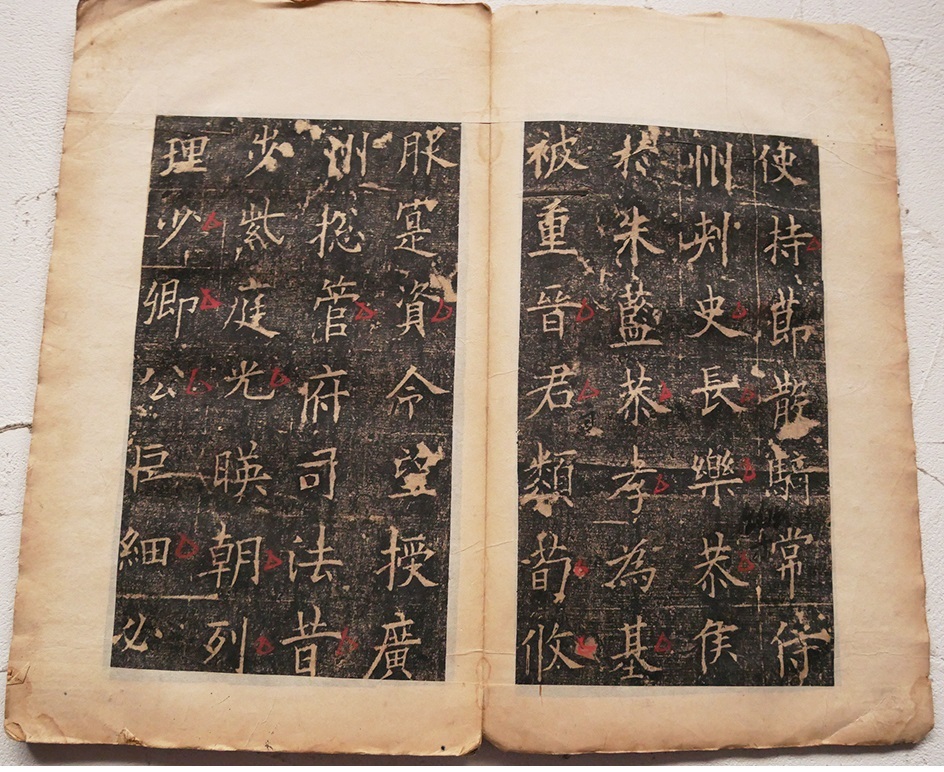 使持莭散騎常侍
州刾史長樂恭侯
扵朱藍恭孝為基
被重晉君類荀攸
服寔資令望授廣
州揔管府司法昔
步紫庭光暎朝列
理少卿公巨細必